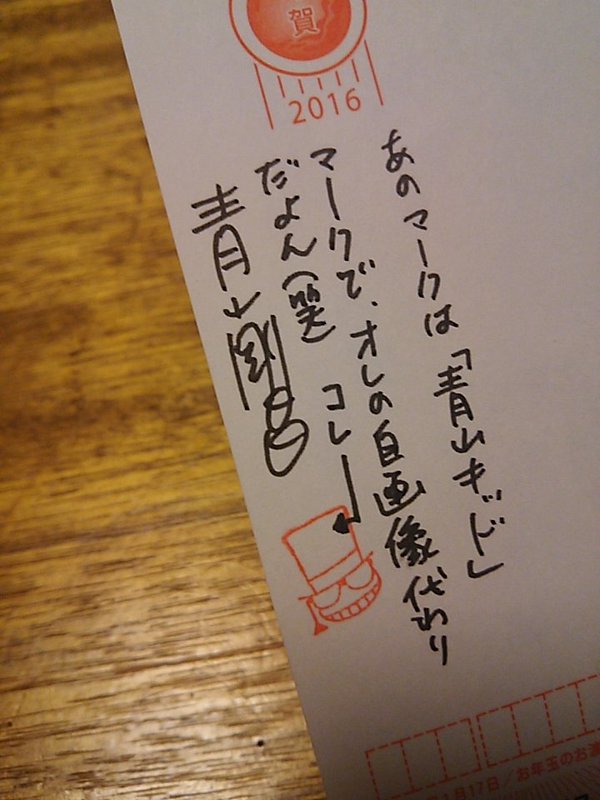 賀
2016
あのマークは「青山キッド」
マークで、オレの自画像代わり
だよん(笑)
コレ
青山剛昌
1月17日/お年玉のお渡